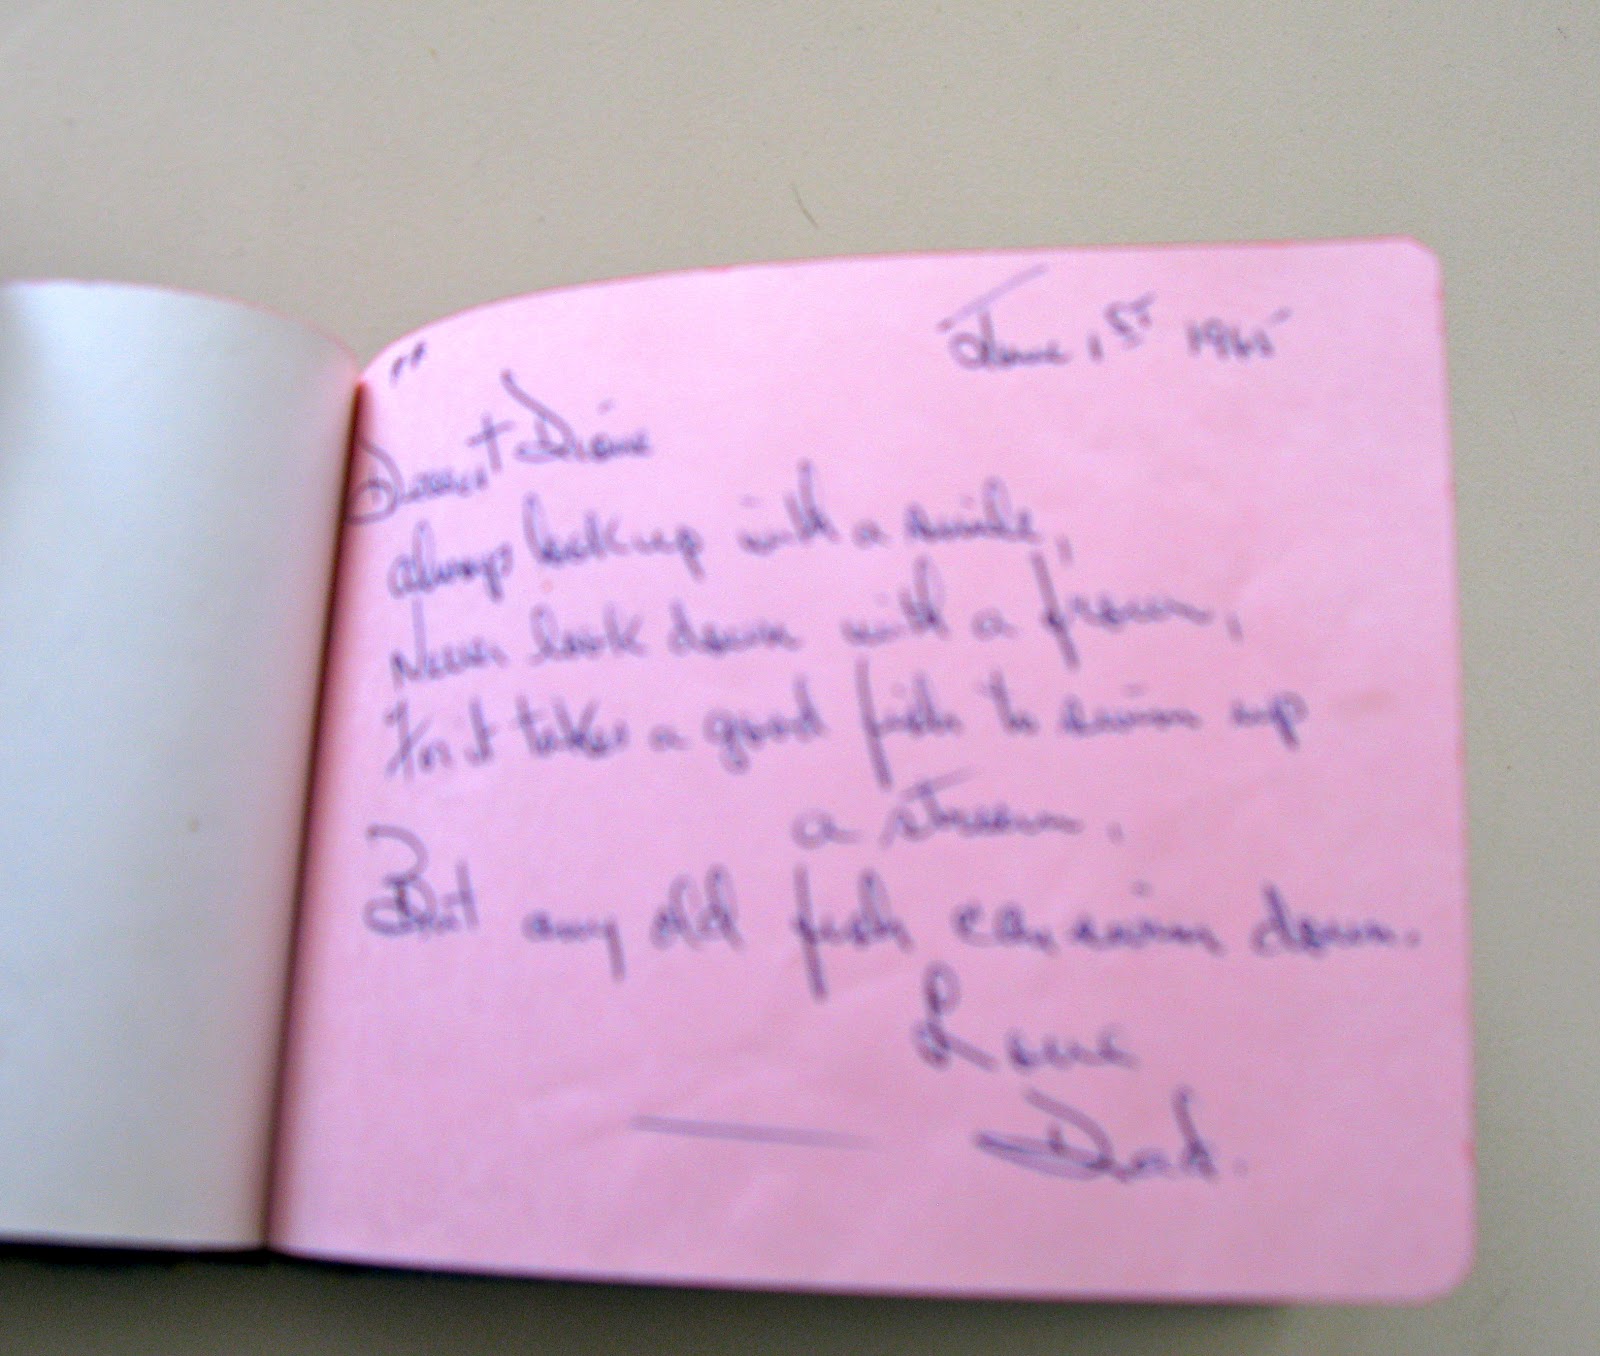 June 1st 1965
Dearest Diane
Always look up with a smile,
Never look down with a frown,
For it takes a good fish to swim up
a stream,
But any old fish can swim down.
Love
Dad.